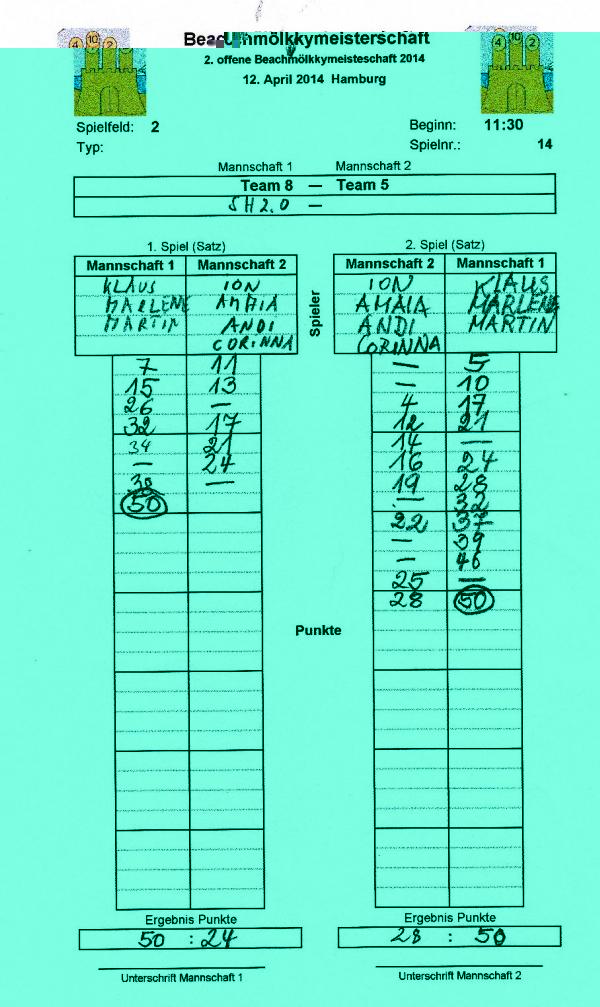 Beachmölkkymeisterschaft
2. offene Beachmölkkymeisteschaft 2014
12. April 2014 Hamburg
4 10 2
4 10 2
Spielfeld: 2 Beginn: 11:30
Typ: Spielnr.: 14
Mannschaft 1 Mannschaft 2
Team 8 — Team 5
SH 2.0 —
1. Spiel (Satz) 2. Spiel (Satz)
Mannschaft 1 Mannschaft 2 Mannschaft 2 Mannschaft 1
Spieler
KLAUS ION ION KLAUS
MARLENE AMAIA AMAIA MARLENE
MARTIN ANDI ANDI MARTIN
CORINNA CORINNA
7 11 — 5
15 13 — 10
26 — 4 17
32 17 12 21
34 21 14 —
— 24 16 24
38 — 19 28
50 — 32
22 37
— 39
— 46
25 —
28 50
Punkte
Ergebnis Punkte Ergebnis Punkte
50 : 24 28 : 50
Unterschrift Mannschaft 1 Unterschrift Mannschaft 2